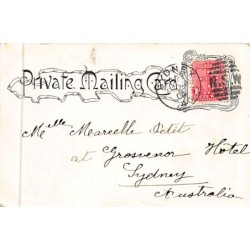 Private Mailing Card
Melle Marcelle Petit
at Grosvenor Hotel
Sydney
Australia